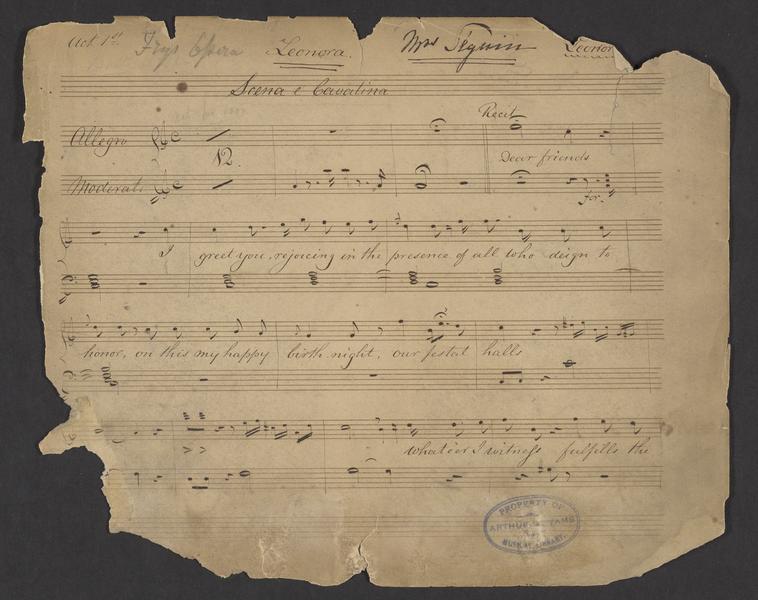 Act 1st. Frys Opera Leonora. Mrs Seguin Leonor
Scena e Cavatina
Recit
Allegro
12. Dear friends
Moderato
for.
I greet you, rejoicing in the presence of all who deign to
honor, on this my happy birth night, our festal halls
whate'er I witness fulfills the
PROPERTY OF
ARTHUR
MUSICAL LIBRARY.